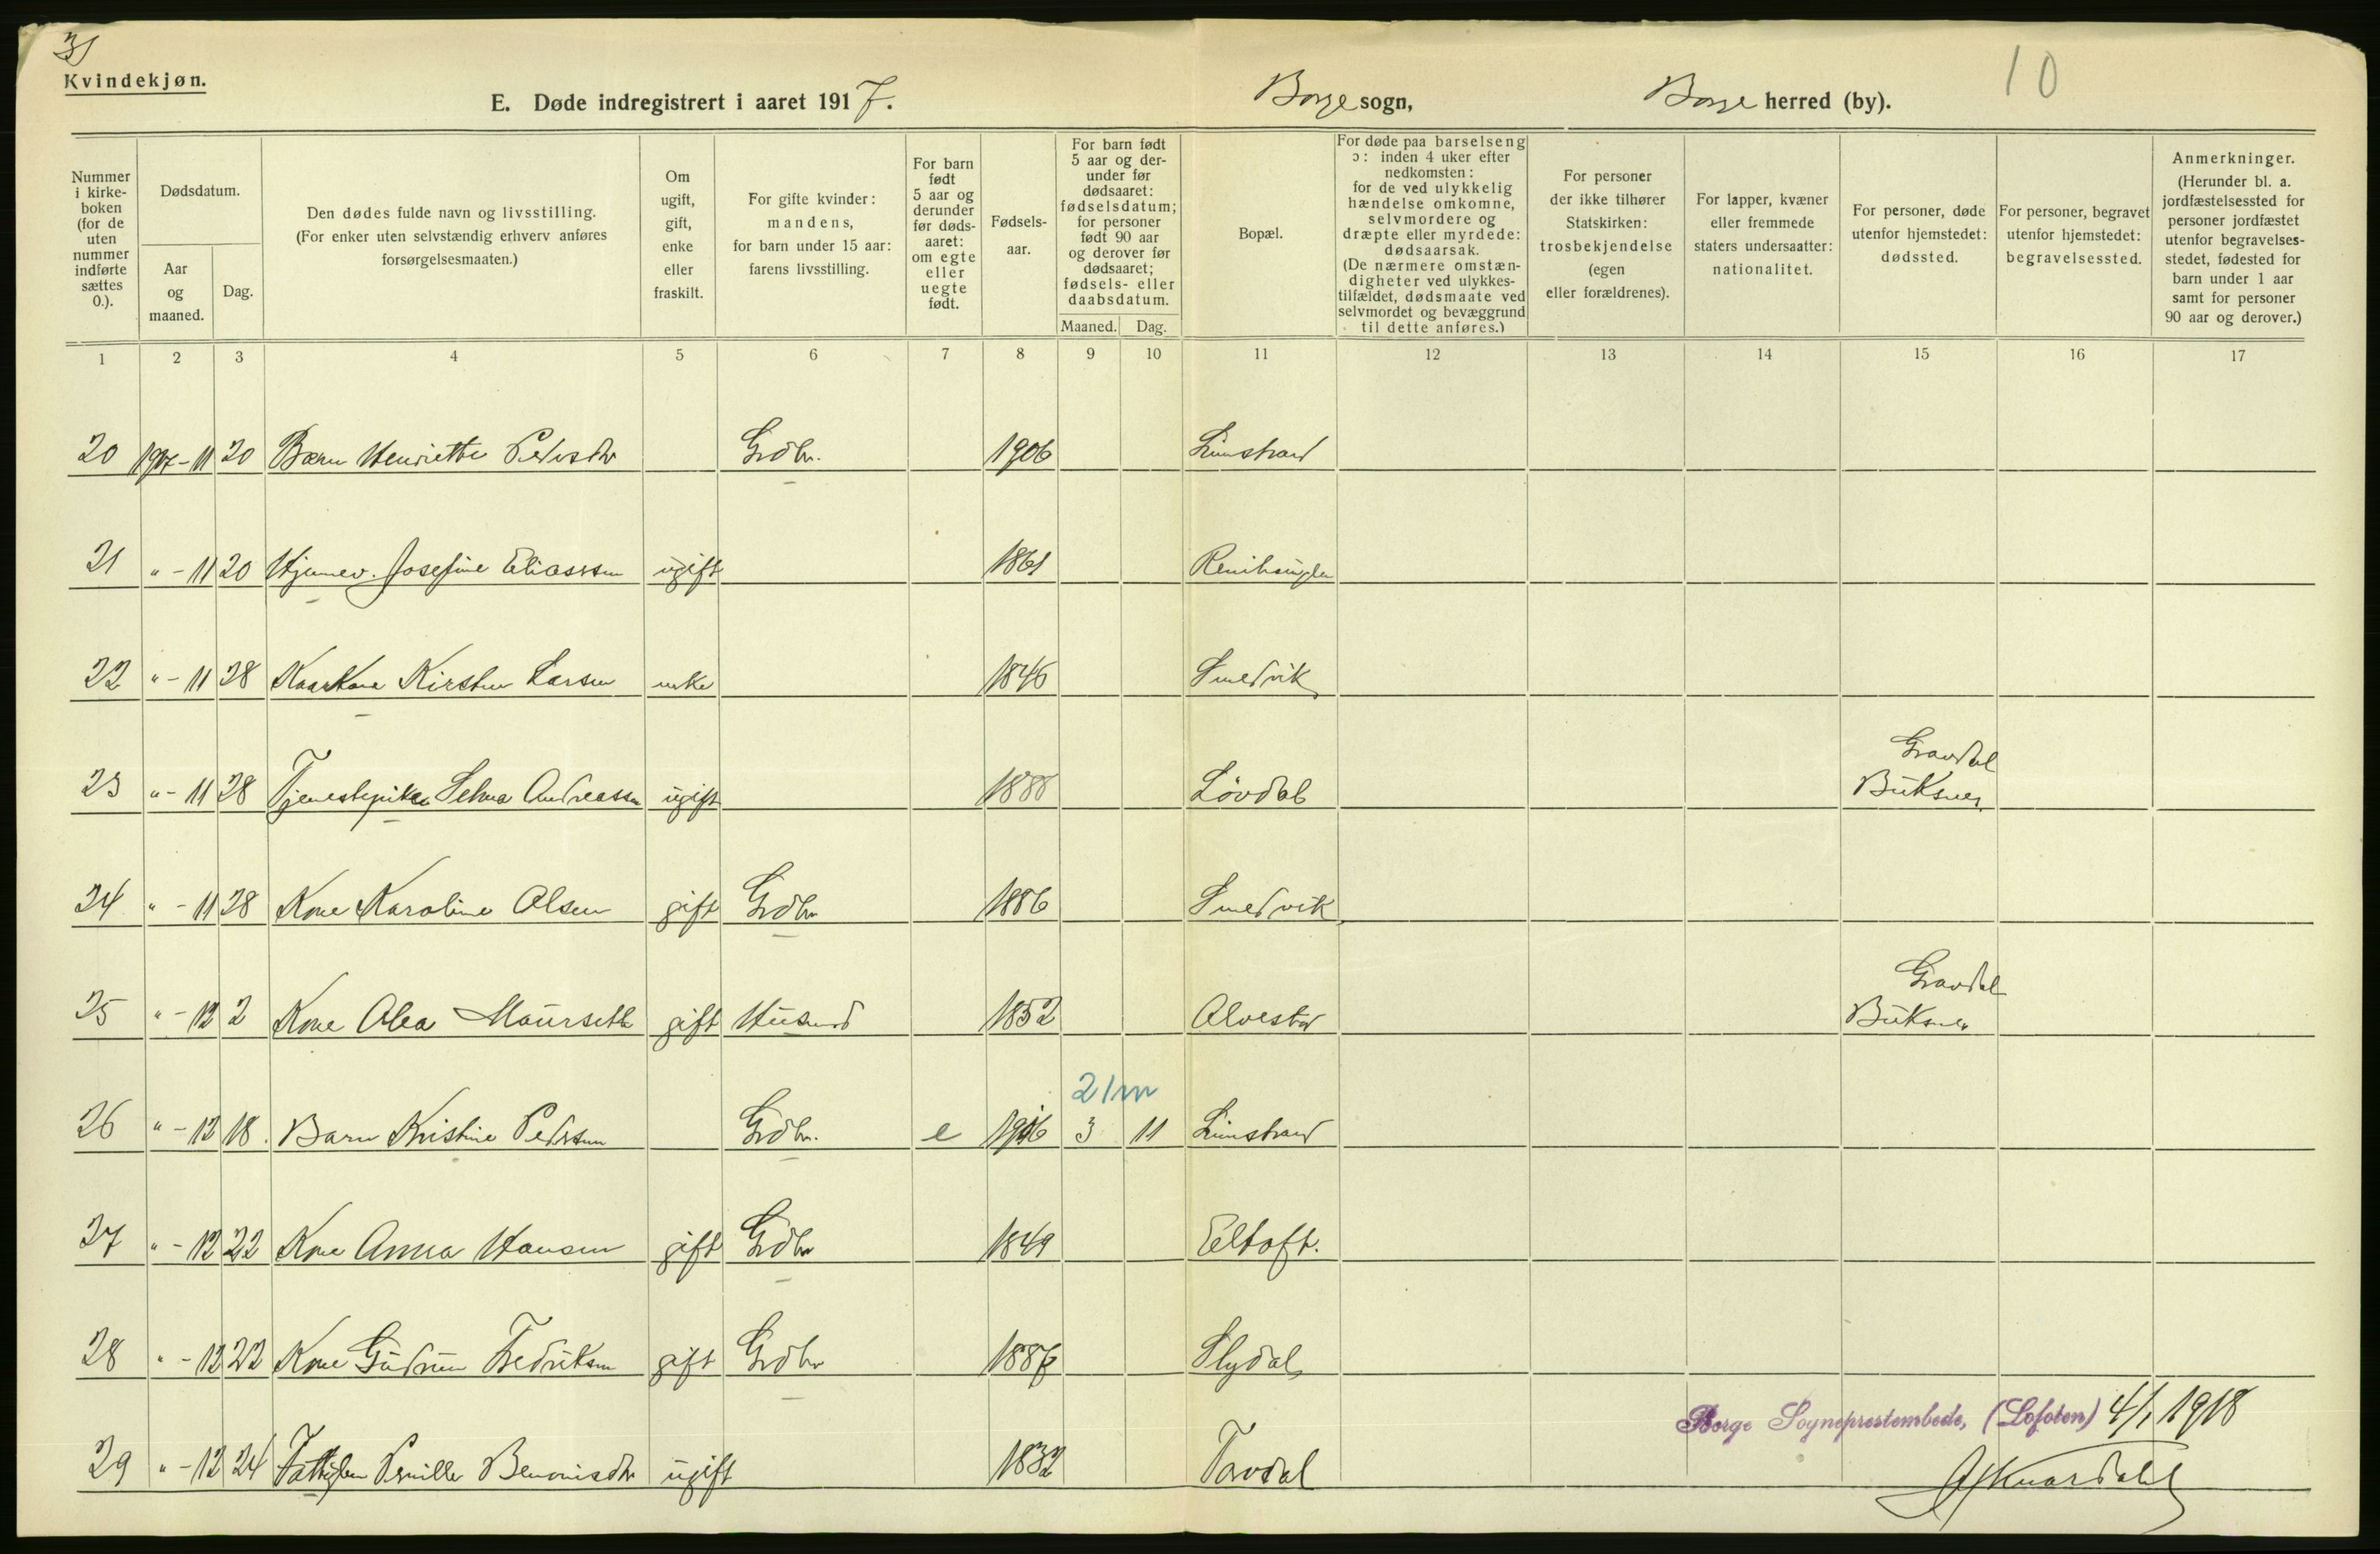 3)
Kvindekjøn.
10
E. Døde indregistrert i aaret 1917.
Borge sogn,
Borge herred (by).
Nummer i kirke-boken (for de uten nummer indførte sættes 0.).
Dødsdatum.
Aar og maaned.
Dag.
Den dødes fulde navn og livsstilling.
(For enker uten selvstændig erhverv anføres
forsørgelsesmaaten.)
Om ugift, gift, enke eller fraskilt.
For gifte kvinder: mandens, for barn under 15 aar: farens livsstilling.
For barn født 5 aar og derunder før døds-aaret: om egte eller uegte født.
Fødsels-aar.
For barn født 5 aar og der-under før dødsaaret: fødselsdatum; for personer født 90 aar og derover før dødsaaret; fødsels- eller daabsdatum.
Maaned. Dag.
Bopæl.
For døde paa barselseng ɔ: inden 4 uker efter nedkomsten: for de ved ulykkelig hændelse omkomne, selvmordere og dræpte eller myrdede: dødsaarsak. (De nærmere omstæn-digheter ved ulykkes-tilfældet, dødsmaate ved selvmordet og bevæggrund til dette anføres.)
For personer der ikke tilhører Statskirken: trosbekjendelse (egen eller forældrenes).
For lapper, kvæner eller fremmede staters undersaatter: nationalitet.
For personer, døde utenfor hjemstedet: dødssted.
For personer, begravet utenfor hjemstedet: begravelsessted.
Anmerkninger. (Herunder bl. a. jordfæstelsessted for personer jordfæstet utenfor begravelses-stedet, fødested for barn under 1 aar samt for personer 90 aar og derover.)
1 2 3 4 5 6 7 8 9 10 11 12 13 14 15 16 17
20 1917-11 20 Barn Henriette Pedersdtr Grdbr. 1906 Limstrand
21 " - 11 20 Hjemmev. Josefine Eliassen ugift 1861
22 " - 11 28 Kaarkone Kirsten Larsen enke 1846 Smedvik
Gravdal
23 " - 11 28 Tjenestepike Selma Andreassen ugift 1888 Løvdal Buksnes
24 " - 11 28 Kone Karoline Olsen gift Grdbr 1886 Smedvik
Gravdal
25 " - 12 2 Kone Alea Maurseth gift Husmd 1852 Alvestad Buksnes
21m
26 " - 12 18. Barn Kristine Pedersen Grdbr. e 1916 3 11 Limstrand
27 " - 12 22 Kone Anna Hansen gift Grdbr 1849 Eltoft.
28 " - 12 22 Kone Gudrun Fredriksen gift Grdbr 1887 Slydal
Borge Sogneprestembede, (Lofoten) 4/1 1918
29 " - 12 24 Fattiglem Pernille Benonisdtr ugift 1832 Torvdal